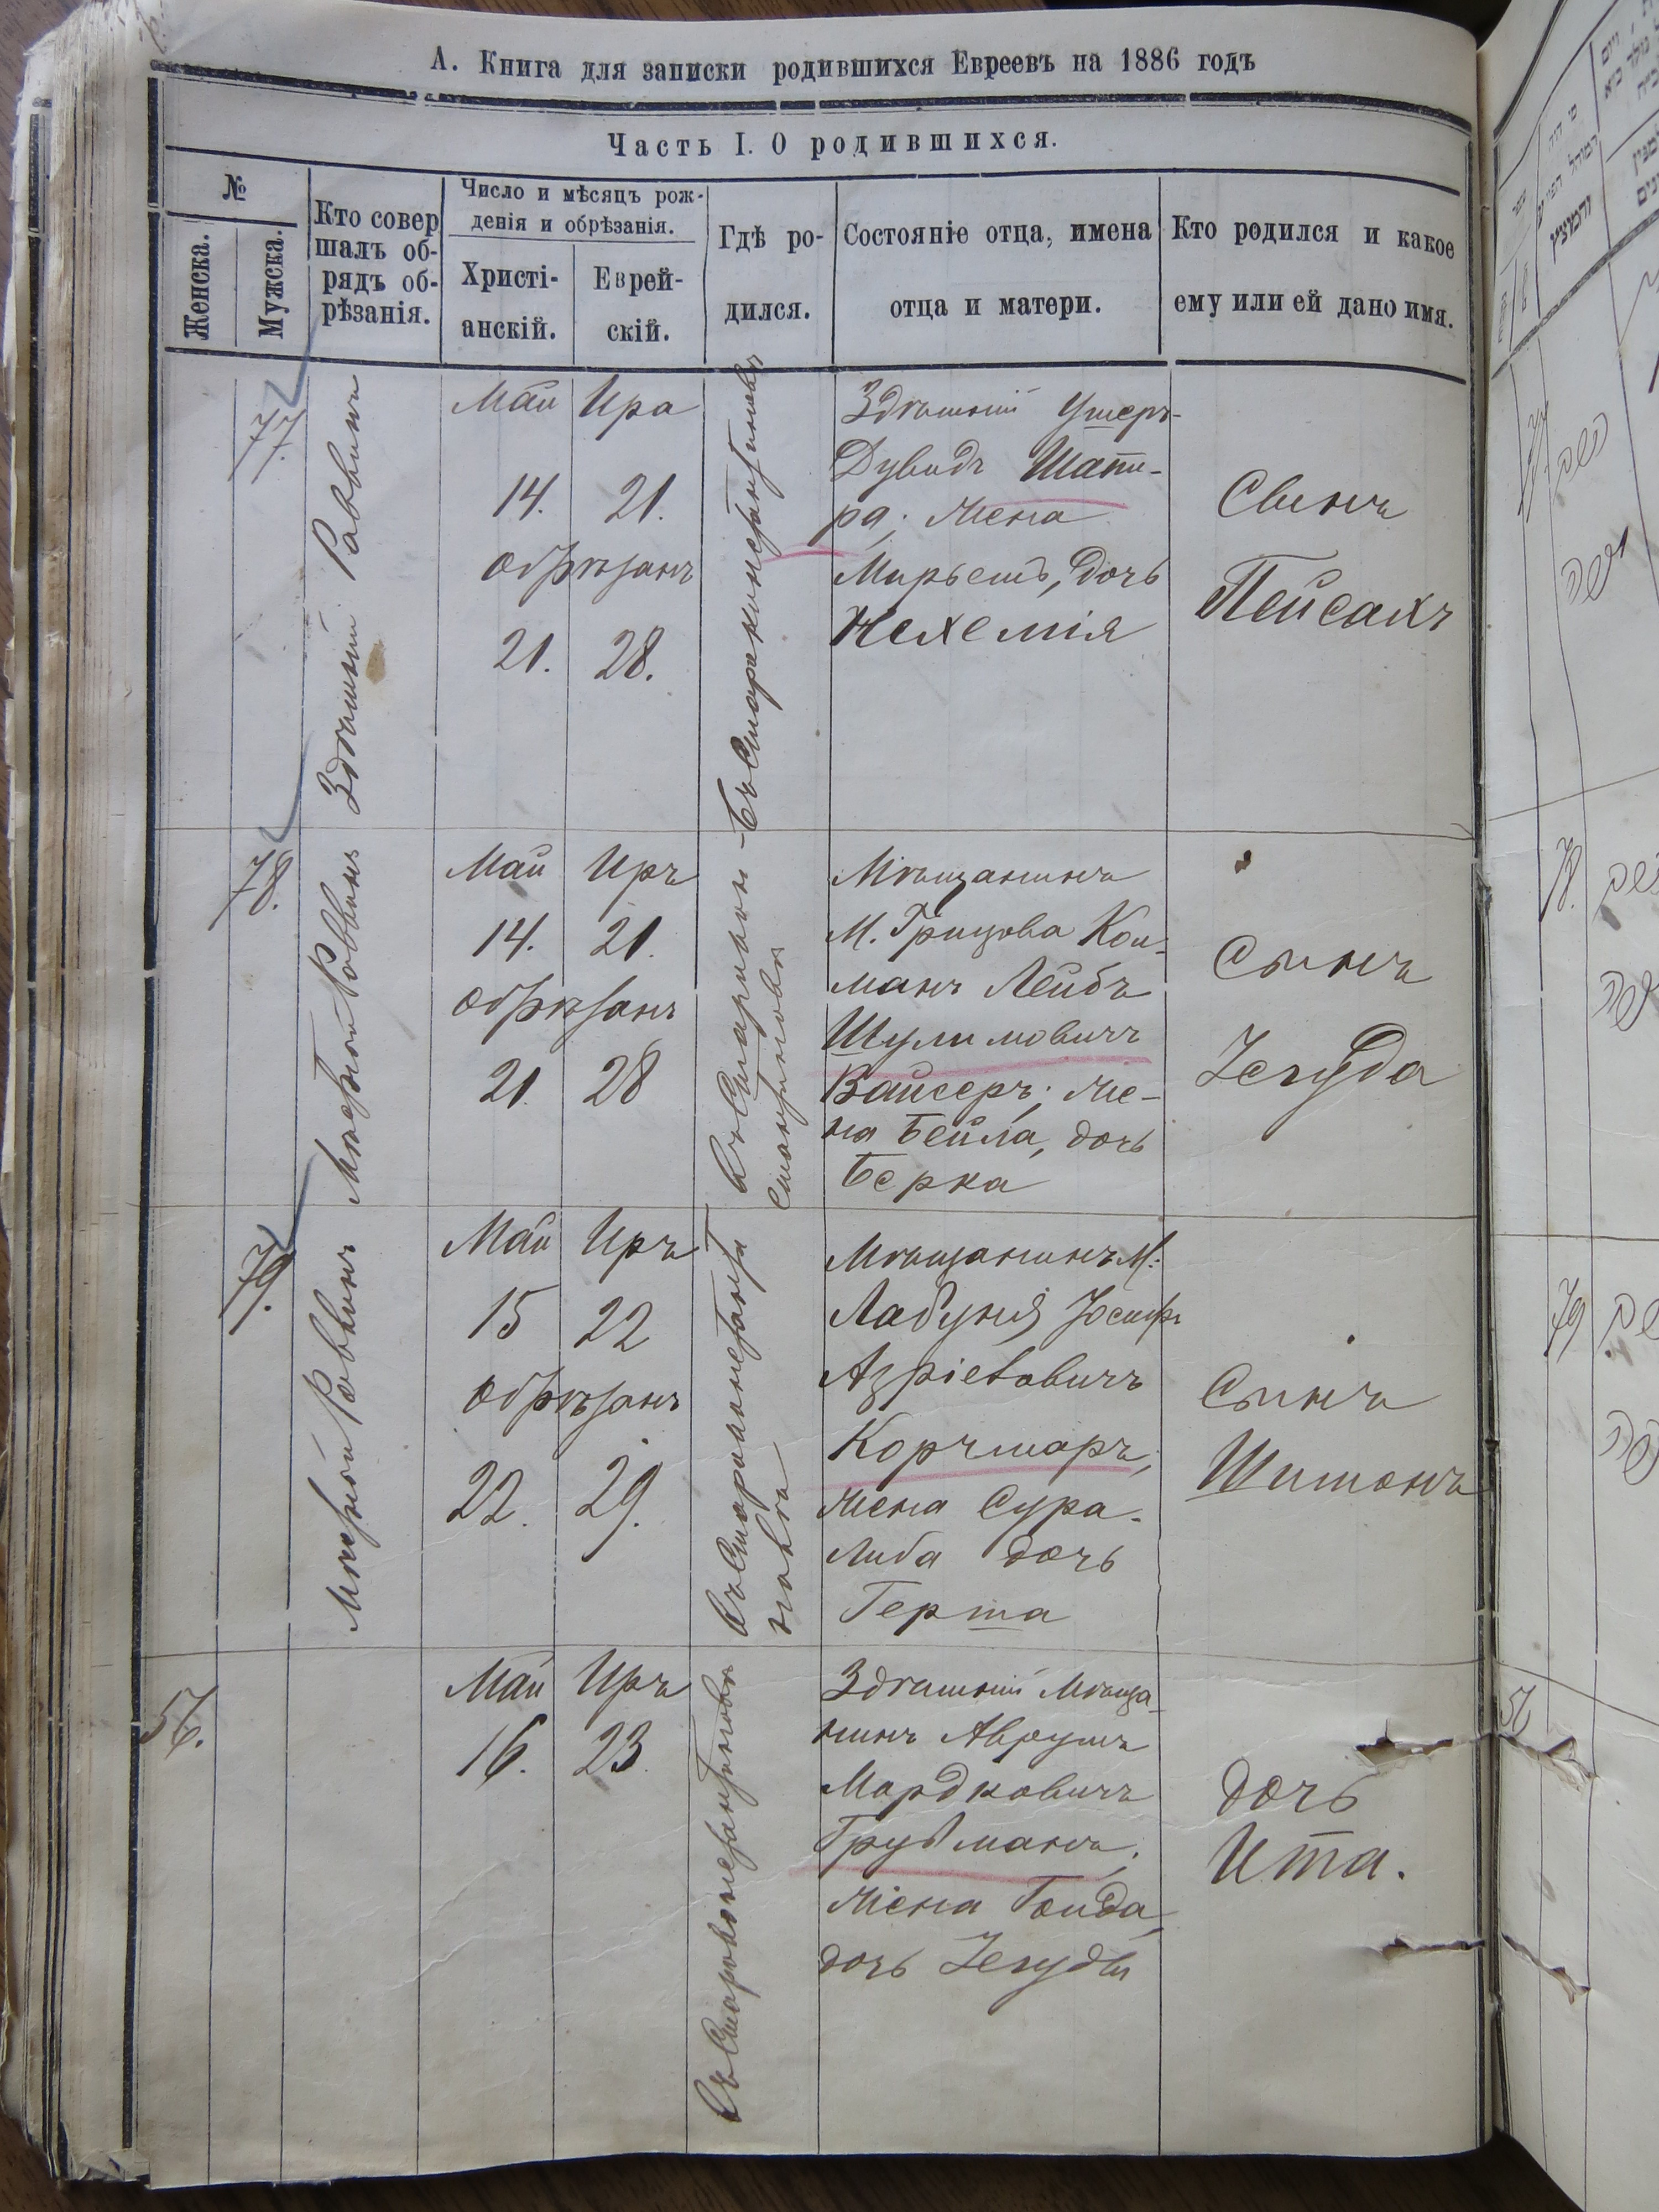 А. Книга для записки родившихся Евреевъ на 1886 годъ
Часть I. О родившихся.
№
Женска.
Мужска.
Кто совер
шалъ об-
рядъ об-
рѣзанія.
Число и мѣсяцъ рож-
денія и обрѣзанія.
Христі-
анскій.
Еврей-
скій.
Гдѣ ро-
дился.
Состояніе отца, имена
отца и матери.
Кто родился и какое
ему или ей дано имя.
77.
Здѣшній Раввинъ
Май
14.
Обрѣзанъ
21.
Ира
21.
28.
Въ Староконстантиновѣ
Здѣшній Ушеръ-
Дувидъ Шапи-
ра; жена
Мирьемъ, дочь
Нехемія
Сынъ
Пейсахъ
78.
Мѣстной Раввинъ
Май
14.
Обрѣзанъ
21.
Иръ
21.
28
Въ Старокон
стантиновѣ
Мѣщанинъ
М. Грицова Кол-
манъ Лейбъ
Шулимовичъ
Вайсеръ; же-
на Бейла, дочь
Берка
Сынъ
Іегуда
79.
Мѣстной Раввинъ
Май
15
Обрѣзанъ
22.
Иръ
22
29.
Въ Староконстанти
новѣ
Мѣщанинъ М.
Лабунія Іосифъ
Азріевовичъ
Корчмаръ,
жена Сура-
Либа дочь
Герша
Сынъ
Шимонъ
56.
Май
16.
Иръ
23.
Въ Староконстантиновѣ
Здѣшній Мѣща-
нинъ Аврумъ
Мардковичъ
Грубманъ;
жена Голда,
дочь Іегуды
дочь
Ита.
78.
79
56